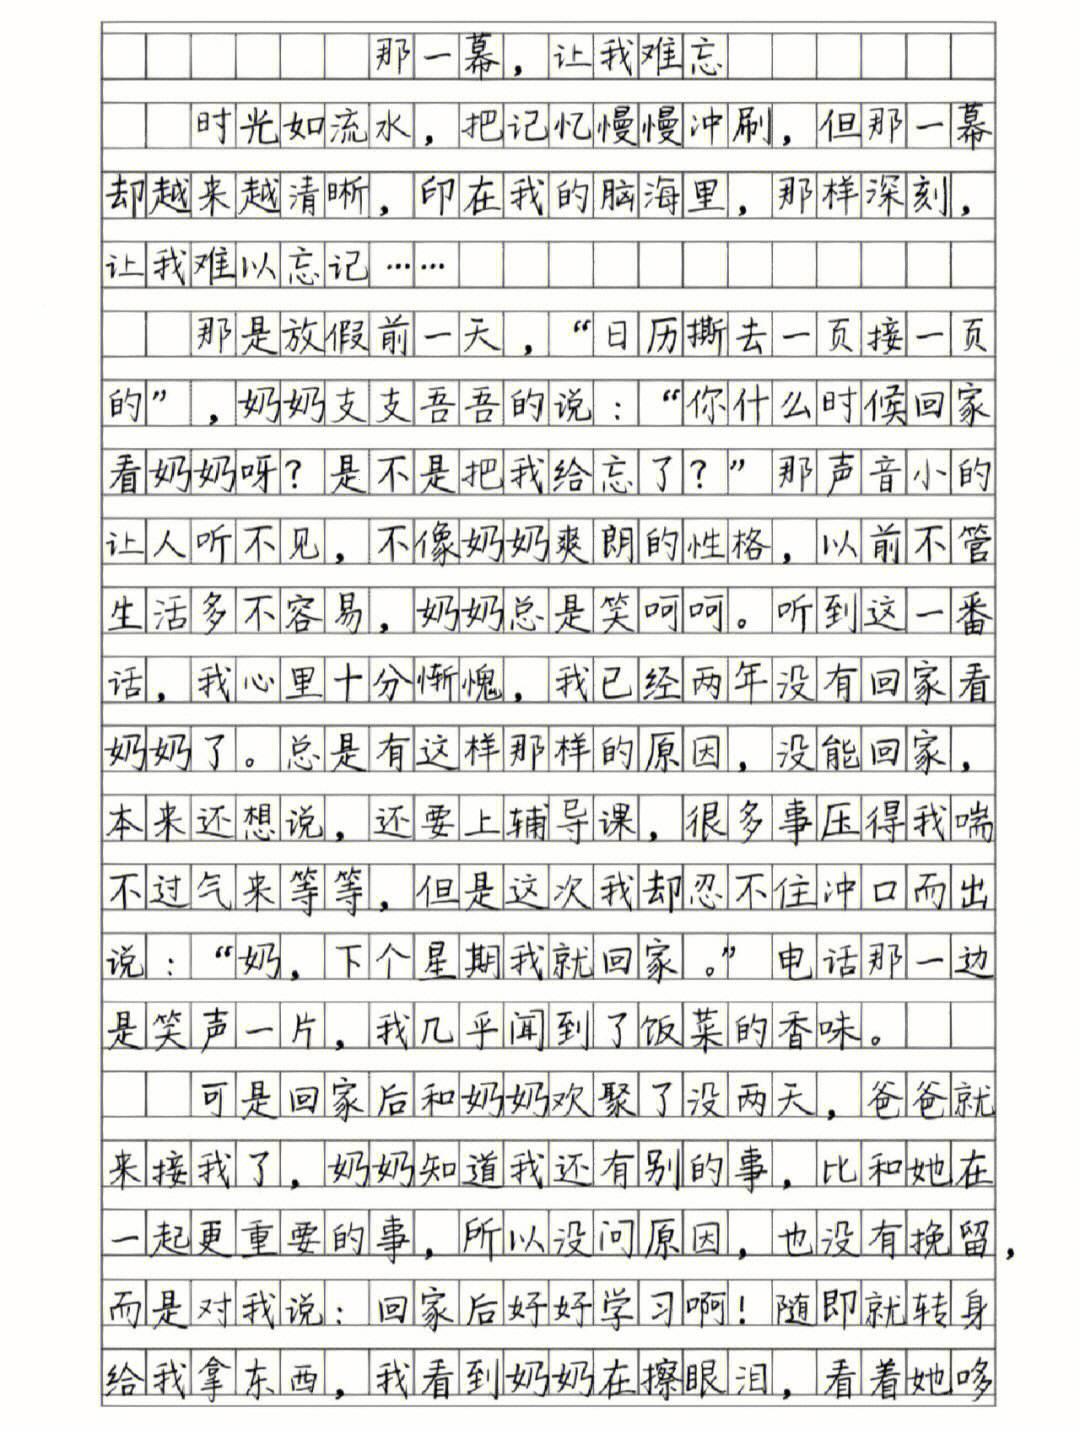 那一幕，让我难忘
时光如流水，把记忆慢慢冲刷，但那一幕
却越来越清晰，印在我的脑海里，那样深刻，
让我难以忘记……
那是放假前一天，“日历撕去一页接一页
的”，奶奶支支吾吾的说：“你什么时候回家
看奶奶呀？是不是把我给忘了？”那声音小的
让人听不见，不像奶奶爽朗的性格，以前不管
生活多不容易，奶奶总是笑呵呵。听到这一番
话，我心里十分惭愧，我已经两年没有回家看
奶奶了。总是有这样那样的原因，没能回家，
本来还想说，还要上辅导课，很多事压得我喘
不过气来等等，但是这次我却忍不住冲口而出
说：“奶，下个星期我就回家。”电话那一边
是笑声一片，我几乎闻到了饭菜的香味。
可是回家后和奶奶欢聚了没两天，爸爸就
来接我了，奶奶知道我还有别的事，比和她在
一起更重要的事，所以没问原因，也没有挽留，
而是对我说：回家后好好学习啊！随即就转身
给我拿东西，我看到奶奶在擦眼泪，看着她哆